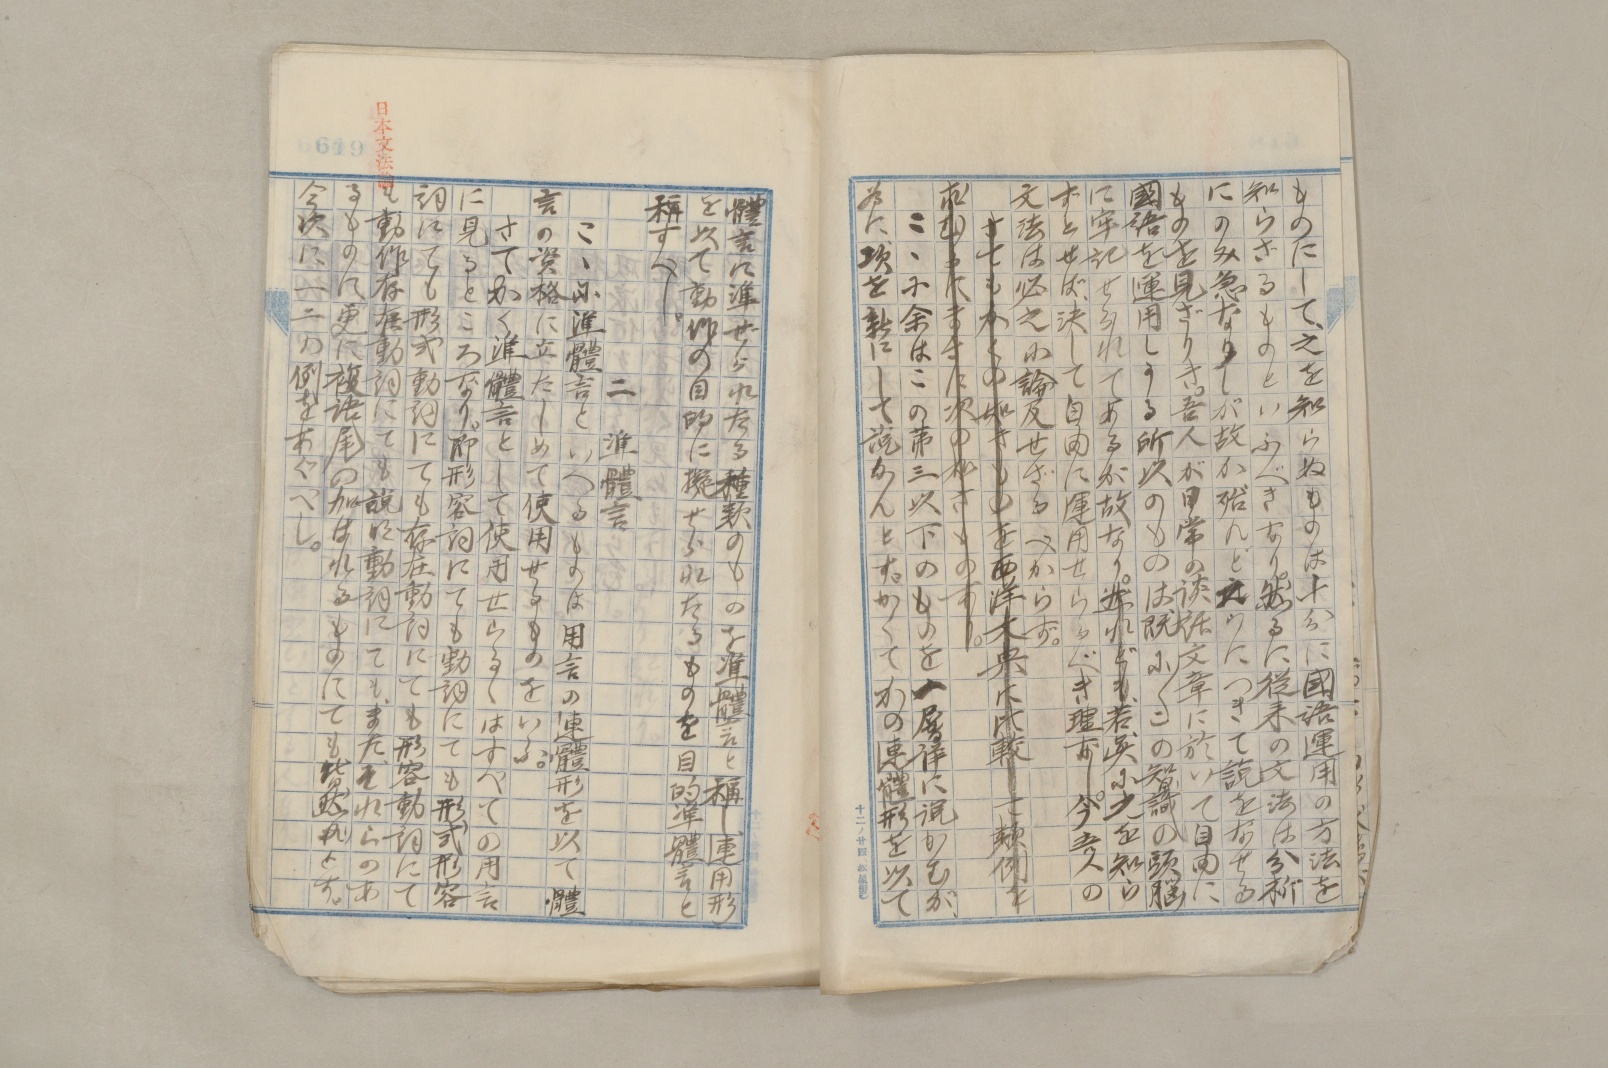 ものにして、之を知らぬものは十分に國語運用の方法を
知らざるものといふべきなり。然るに従来の文法は分析
にのみ急なりしが故か殆んど之らにつきて説をなせる
ものを見ざりき。吾人が日常の談話文章に於いて自由に
國語を運用しうる所以のものは既にこの智識の頭脳
に牢記せられてあるが故なり。然れども、若実に之を知ら
ずとせば、決して自由に運用せらるべき理なし。今吾人の
文法は必之に論及せざるべからず。
さてもかくの如きものを西洋文典に比較して類例を
求むるにまさに次の如きものあり。
こゝに余はこの第三以下のものを一層詳に説かむが
為に、項を新にして説かんとす。かくてかの連體形を以て
體言に準ぜられたる種類のものを準體言と稱し、連用形
を以て動作の目的に擬せられたるものを目的準體言と
稱すべし。
二 準體言
こゝに準體言といへるものは用言の連體形を以て體
言の資格に立たしめて使用せるものをいふ。
さてかく準體言として使用せらるゝはすべての用言
に見るところなり。即形容詞にても動詞にても形式形容
詞にても形式動詞にても存在動詞にても形容動詞にて
も動作存在動詞にても説明動詞にても、またそれらのあ
るものに、更に複語尾の加はれるものにても皆然りとす。
今次に一二の例をあぐべし。
日本文法論
619